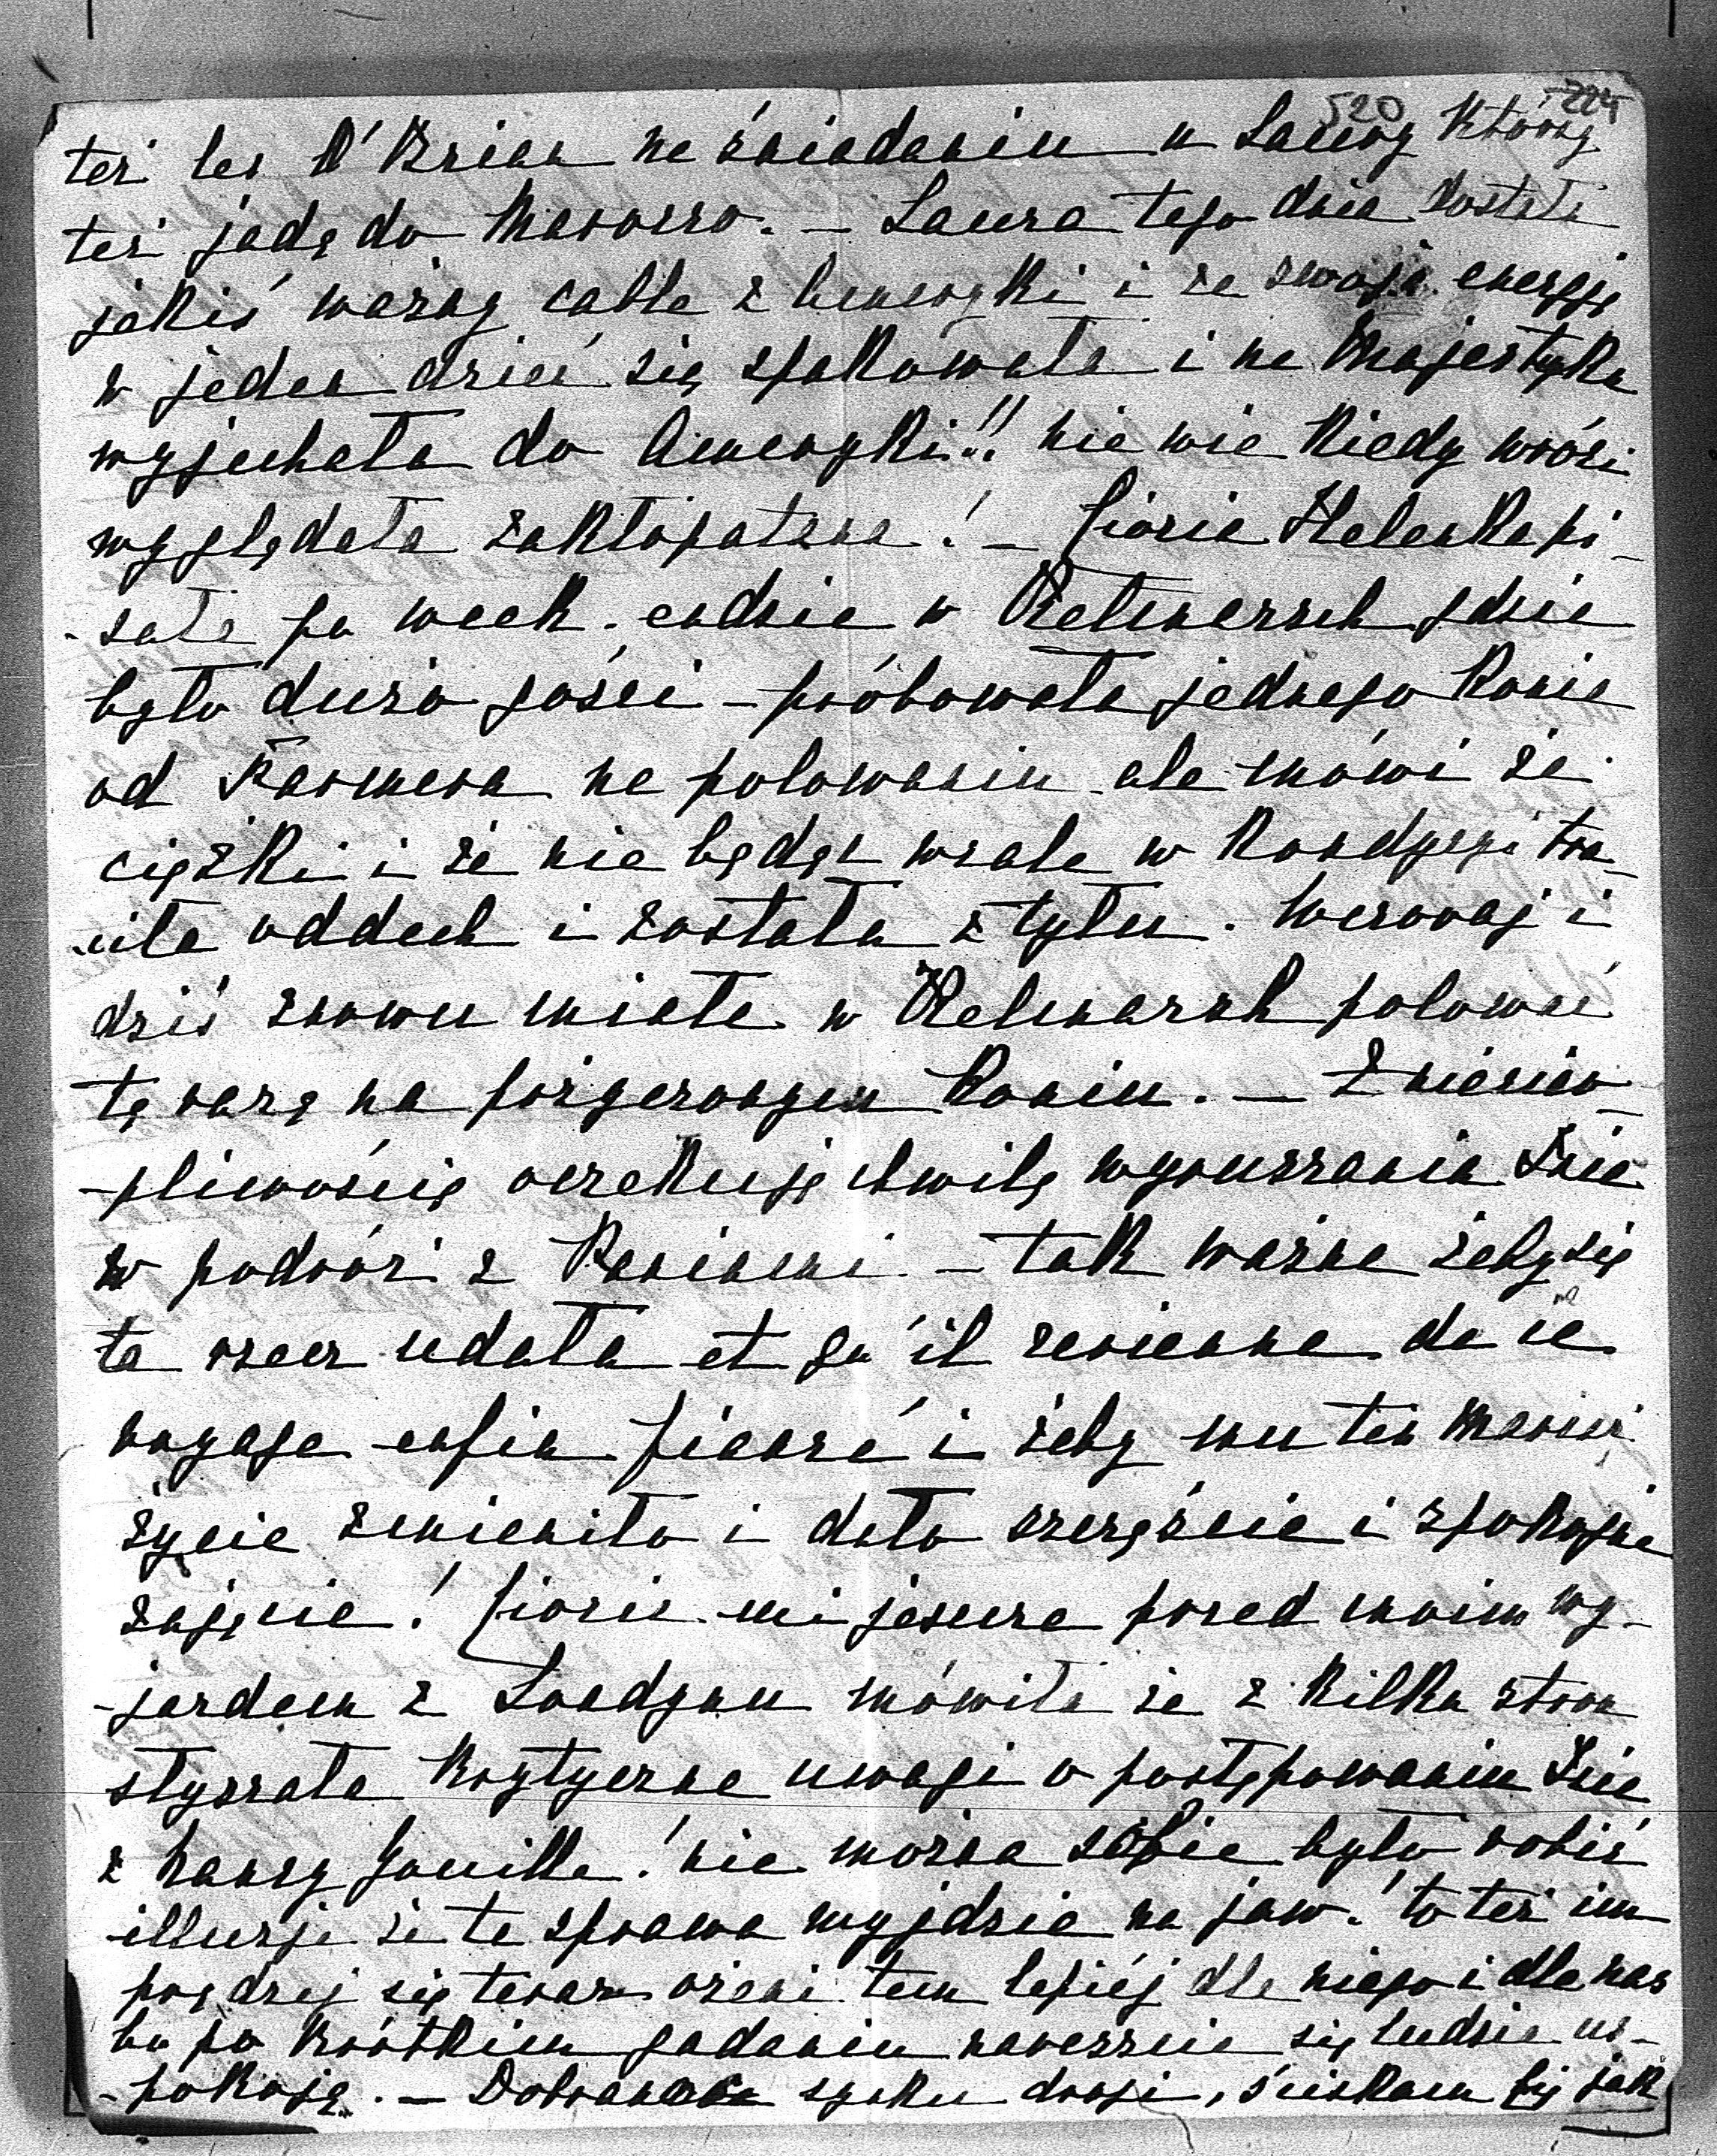 520 224
też les O'Brien na śniadaniu u Laury którzy
też jadą do Marocco. – Laura tego dnia dostała
jakiś ważny cable z Ameryki i ze swoją energją
w jeden dzień się spakowała i na Majestyku
wyjechała do Ameryki!! nie wie kiedy wróci
wyglądała zakłopotana! – Ciocia Helenka pi-
-sała po week-endzie w gdzie
było dużo gości – próbowała jednego konia
od Farmera na polowaniu ale mówi że
ciężki i że nie będąc wcale w kondycyi tra-
-ciła oddech i została z tyłu. Wczoraj i
dziś znowu miała w polować
tę razę na pożyczonym koniu. – Z niecier-
-pliwością oczekuję chwilę wyruszania
w podróż z – tak ważne żeby się
ta rzecz udała et qu'il revienne de ce
voyage enfin fiancé i żeby mu ten mariaż
życie zmieniło i dało szczęście i spokojne
zajęcie! Ciocia mi jeszcze przed moim wy-
-jazdem z Londynu mówiła że z kilku stron
słyszała krytyczne uwagi o postępowaniu
z Nancy! nie można sobie było robić
illuzje że ta sprawa wyjdzie na jaw! to też im
prędzej się teraz ożeni tem lepiéj dla niego i dla nas
bo po krótkim gadaniu nareszcie się ludzie us-
-pokoją. – Dobranoc synku drogi, ściskam Cię jak